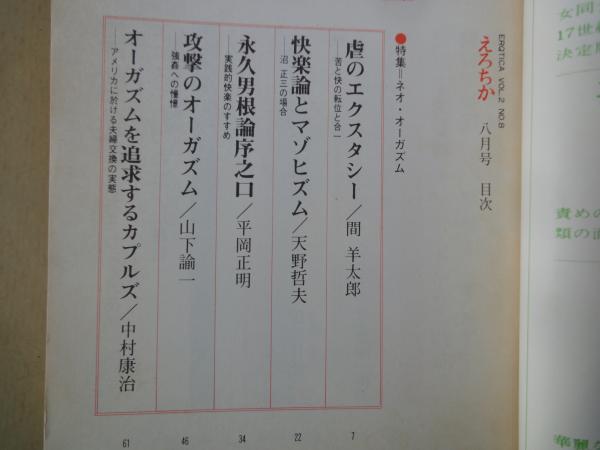 EROTICA VOL.2 NO.8
えろちか 八月号 目次
●特集=ネオ・オーガズム
虐のエクスタシー/間 羊太郎
—苦と快の転位と合一
7
快楽論とマゾヒズム/天野哲夫
—沼 正三の場合
22
永久男根論序之口/平岡正明
—実践的快楽のすすめ
34
攻撃のオーガズム/山下諭一
—強姦への憧憬
46
オーガズムを追求するカプルズ/中村康治
—アメリカに於ける夫婦交換の実態
61
女同
17世
決定
責めの
類の
華麗